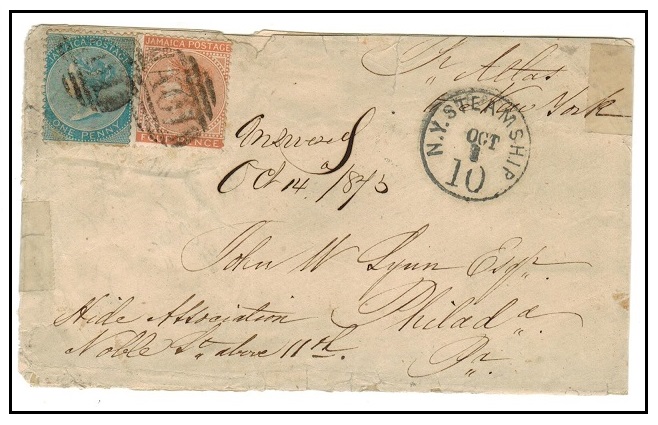 JAMAICA POSTAGE
ONE PENNY
JAMAICA POSTAGE
PENCE
A01
Pr Atlas
New York
N.Y. STEAMSHIP
OCT
10
Oct 14 1875
John W Lynn Esqr.
Hide Association
Philada.
Noble St. above 11th.
Pa